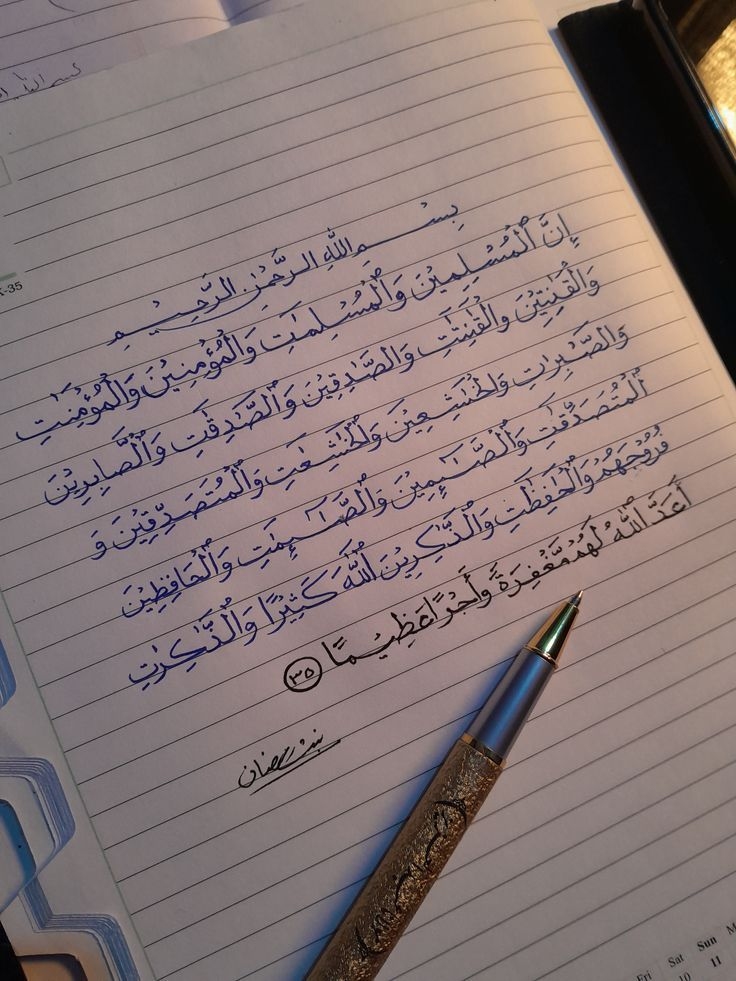 بِسْمِ اللهِ الرَّحْمٰنِ الرَّحِيْمِ
إِنَّ ٱلْمُسْلِمِيْنَ وَٱلْمُسْلِمَٰتِ وَٱلْمُؤْمِنِيْنَ وَٱلْمُؤْمِنَٰتِ
وَٱلْقَٰنِتِيْنَ وَٱلْقَٰنِتَٰتِ وَالصَّٰدِقِيْنَ وَٱلصَّٰدِقَٰتِ وَٱلصَّابِرِيْنَ
وَالصَّٰبِرَٰتِ وَالْخَٰشِعِيْنَ وَٱلْخَٰشِعَٰتِ وَٱلْمُتَصَدِّقِيْنَ وَ
ٱلْمُتَصَدِّقَٰتِ وَٱلصَّٰٓئِمِيْنَ وَٱلصَّٰٓئِمَٰتِ وَٱلْحَافِظِيْنَ
فُرُوْجَهُمْ وَٱلْحَٰفِظَٰتِ وَٱلذَّٰكِرِيْنَ ٱللَّهَ كَثِيْرًا وَٱلذَّٰكِرَٰتِ
أَعَدَّ ٱللَّهُ لَهُمْ مَّغْفِرَةً وَأَجْرًا عَظِيْمًا ٣٥
-35
Fri Sat Sun M
10 11